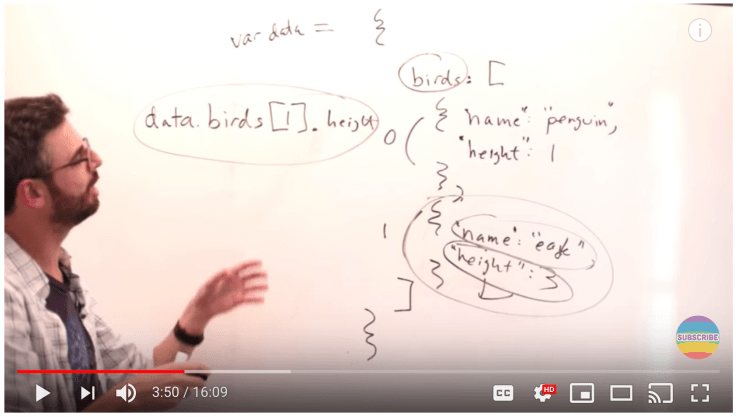 var data = {
birds: [
data.birds[1].height
0 { "name": "penguin",
"height": 1
},
1 { "name": "eagle",
"height": 3
}
]
}
}
SUBSCRIBE
3:50 / 16:09
CC
HD
i